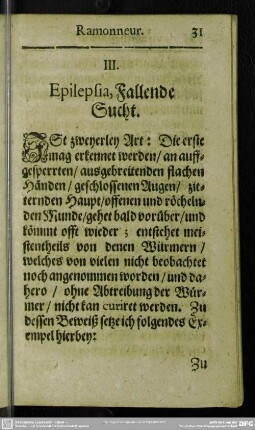 Ramonneur. 31
III.
Epilepsia, Fallende
Sucht.
ISt zweyerley Art: Die erste
mag erkennet werden/ an auff-
gesperrten/ ausgebreitenden flachen
Händen/ geschlossenen Augen/ zit-
ternden Haupt/offenen und röcheln-
den Munde/gehet bald vorüber/und
kömmt offt wieder; entstehet mei-
stentheils von denen Würmern/
welches von vielen nicht beobachtet
noch angenommen worden/ und da-
hero/ ohne Abtreibung der Wür-
mer/ nicht kan curiret werden. Zu
dessen Beweiß setze ich folgendes Ex-
empel hierbey:
Zu